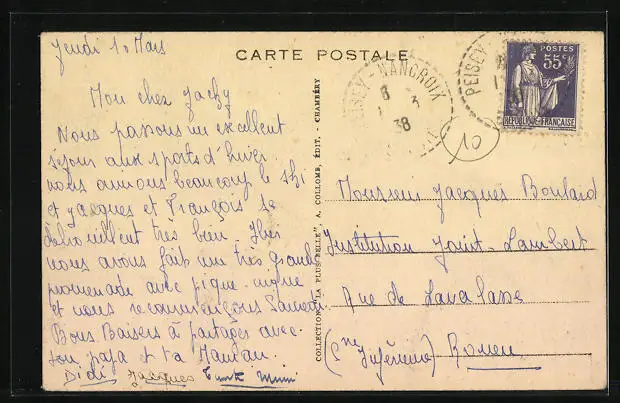 Jeudi 10 Mars
CARTE POSTALE
Mon cher Jacky
Nous passons un excellent
séjour aux sports d'hiver
nous aimons beaucoup le ski
et Jacques et François se
débrouillent très bien. Hier
nous avons fait une très grande
promenade avec pique-nique
et nous recommençons Samedi
Bons Baisers à partager avec
ton papa et ta Maman.
Didi Jacques Tante Mimi
COLLECTION "LA PLUS BELLE", A. COLLOMB, ÉDIT. - CHAMBÉRY
PEISEY-NANCROIX
8
3
38
PEISEY
POSTES
55c
RÉPUBLIQUE FRANÇAISE
10
Monsieur Jacques Boulard
Institution Joint-Lambert
Rue de Lavalasse
(Sne Inférieure) Rouen